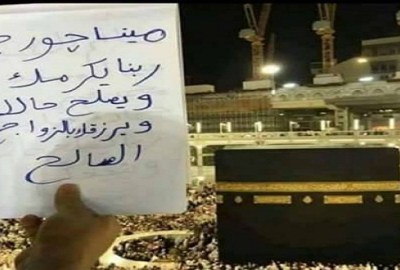 مينا جورج
ربنا يكرمك
ويصلح حالك
ويرزقك بالزواج
الصالح